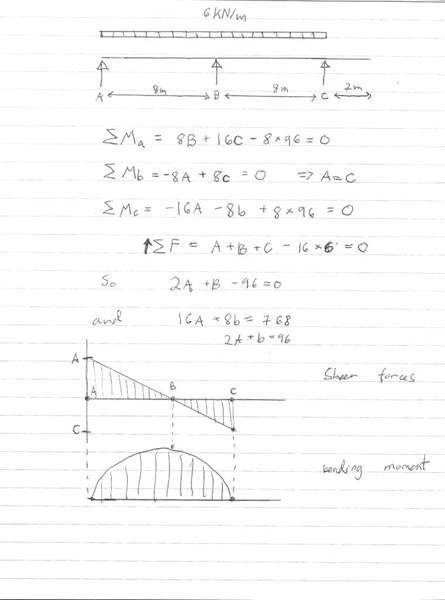 6KN/m
A 8m B 8m C 2m
ΣMa = 8B + 16C - 8 × 96 = 0
ΣMb = -8A + 8C = 0 => A=C
ΣMc = -16A - 8b + 8 × 96 = 0
↑ΣF = A + B + C - 16 × 6 = 0
So 2A + B - 96 = 0
and 16A + 8b = 768
2A + b = 96
A
A B C
Shear forces
C
bending moment